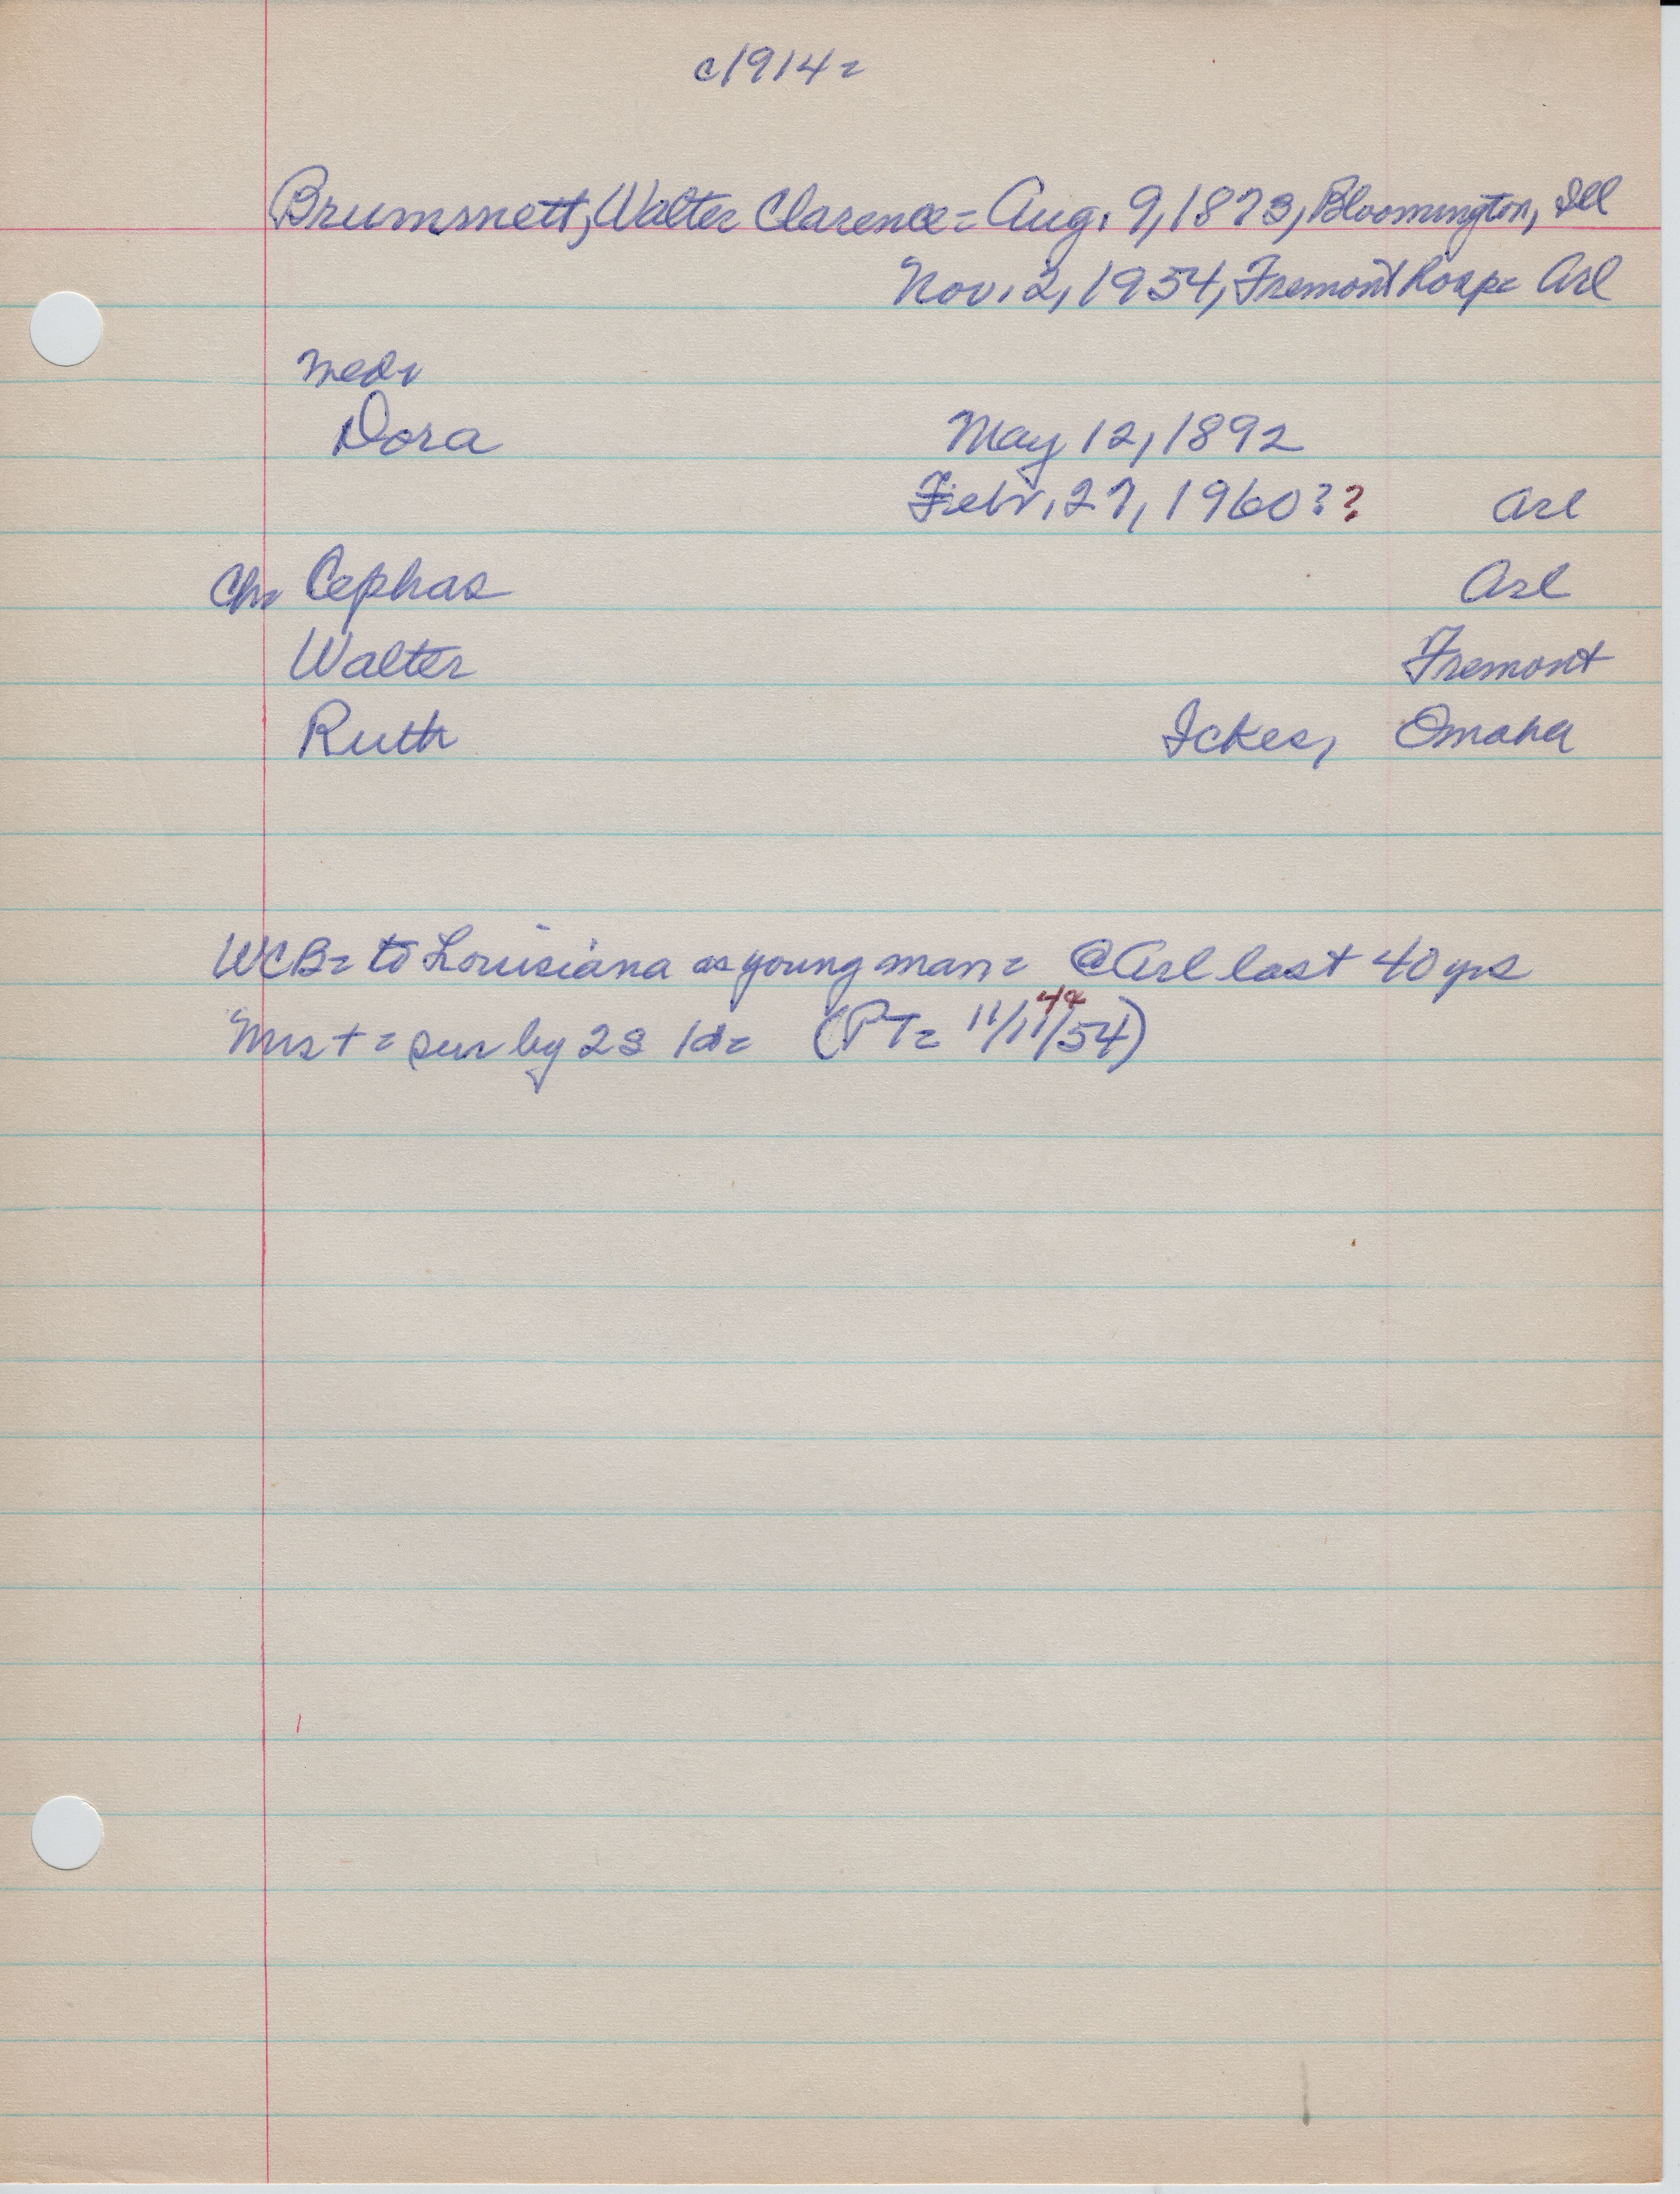 c1914=
Brummett, Walter Clarence= Aug. 9, 1873, Bloomington, Ill
Nov. 2, 1954, Fremont Hosp= Arl
Dora May 12, 1892
Feb. 27, 1960?? Arl
Ch= Cephas Arl
Walter Fremont
Ruth Ickes, Omaha
WCB= to Louisiana as young man= @ Arl last 40 yrs
Mrs + = sur by 2s 1d= (PT= 11/11/54)